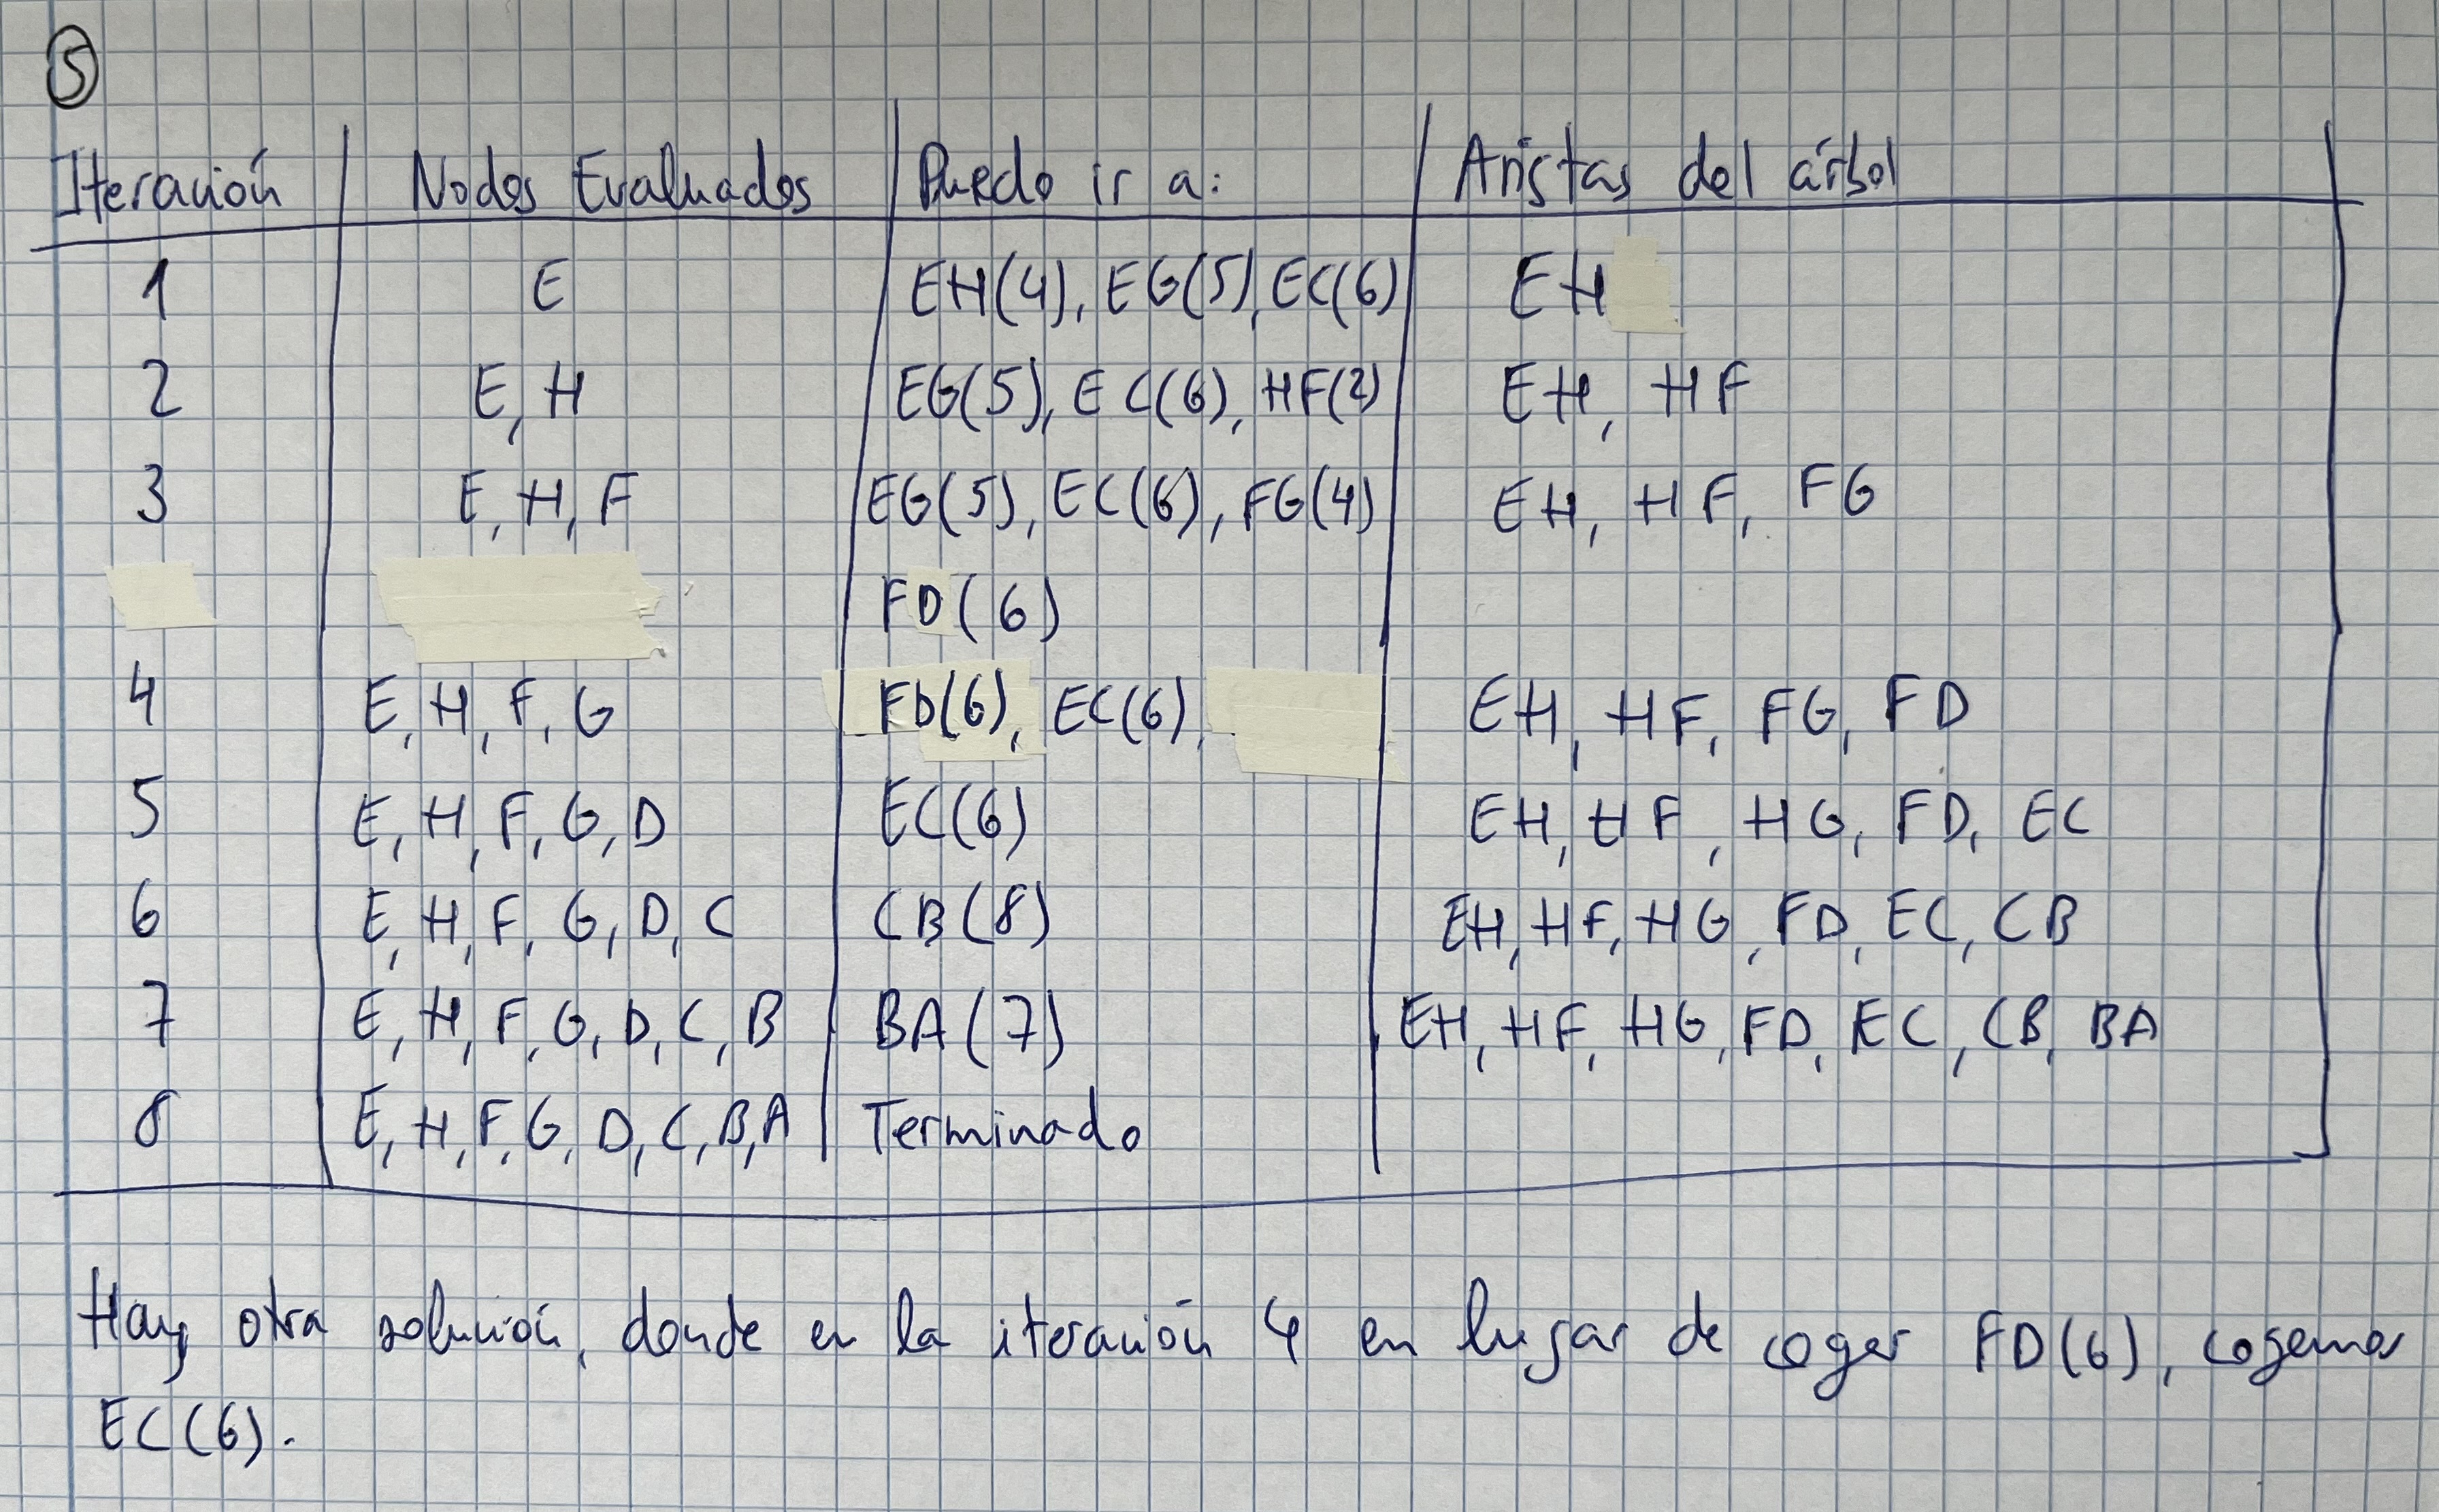 5
Iteración Nodos Evaluados Puedo ir a: Aristas del árbol
1 E EH(4), EG(5), EC(6) EH
2 E, H EG(5), EC(6), HF(2) EH, HF
3 E, H, F EG(5), EC(6), FG(4) EH, HF, FG
FD(6)
4 E, H, F, G FD(6), EC(6), EH, HF, FG, FD
5 E, H, F, G, D EC(6) EH, HF, HG, FD, EC
6 E, H, F, G, D, C CB(8) EH, HF, HG, FD, EC, CB
7 E, H, F, G, D, C, B BA(7) EH, HF, HG, FD, EC, CB, BA
8 E, H, F, G, D, C, B, A Terminado
Hay otra solución, donde en la iteración 4 en lugar de coger FD(6), cogemos
EC(6).